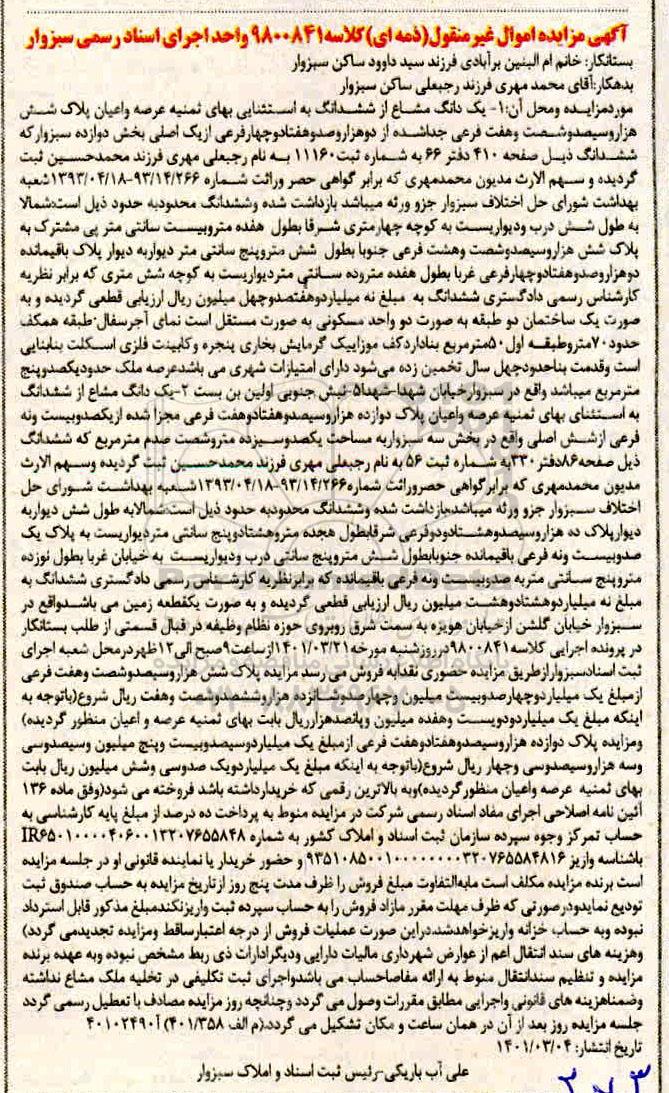 آگهی مزایده اموال غیر منقول(ذمه ای)کلاسه۹۸۰۰۸۴۱ واحد اجرای اسناد رسمی سبزوار
بستانکار: خانم ام البنین برآبادی فرزند سید داوود ساکن سبزوار
بدهکار:آقای محمد مهری فرزند رجبعلی ساکن سبزوار
موردمزایده ومحل آن:۱- یک دانگ مشاع از ششدانگ به استثنایی بهای ثمنیه عرصه واعیان پلاک شش
هزاروسیصدوشصت وهفت فرعی جداشده از دوهزاروصدوهفتادوچهارفرعی ازیک اصلی بخش دوازده سبزوارکه
ششدانگ ذیل صفحه ۴۱۰ دفتر ۶۶ به شماره ثبت۱۱۱۶۰ به نام رجبعلی مهری فرزند محمدحسین ثبت
گردیده و سهم الارث مدیون محمدمهری که برابر گواهی حصر وراثت شماره ۹۳/۱۴/۲۶۶-۱۳۹۳/۰۴/۱۸شعبه
بهداشت شورای حل اختلاف سبزوار جزو ورثه میباشد بازداشت شده وششدانگ محدودبه حدود ذیل است:شمالا
به طول شش درب ودیواریست به کوچه چهارمتری شرقا بطول هفده متروبیست سانتی متر پی مشترک به
پلاک شش هزاروسیصدوشصت وهشت فرعی جنوبا بطول شش متروپنج سانتی متر دیواربه دیوار پلاک باقیمانده
دوهزاروصدوهفتادوچهارفرعی غربا بطول هفده متروده سانتی متردیواریست به کوچه شش متری که برابر نظریه
کارشناس رسمی دادگستری ششدانگ به مبلغ نه میلیاردوهفتصدوچهل میلیون ریال ارزیابی قطعی گردیده و به
صورت یک ساختمان دو طبقه به صورت دو واحد مسکونی به صورت مستقل است نمای آجرسفال-طبقه همکف
حدود۷۰متروطبقه اول۵۰مترمربع بناداردکف موزاییک گرمایش بخاری پنجره وکابینت فلزی اسکلت بنابنایی
است وقدمت بناحدودچهل سال تخمین زده می‌شود دارای امتیازات شهری می باشدعرصه ملک حدودیکصدوپنج
مترمربع میباشد واقع در سبزوارخیابان شهدا-شهدا۵-نبش جنوبی اولین بن بست ۲-یک دانگ مشاع از ششدانگ
به استثنای بهای ثمنیه عرصه واعیان پلاک دوازده هزاروسیصدوهفتادوهفت فرعی مجزا شده ازیکصدوبیست ونه
فرعی ازشش اصلی واقع در بخش سه سبزواربه مساحت یکصدوسیزده متروشصت صدم مترمربع که ششدانگ
ذیل صفحه۸۶دفتر۳۳۰به شماره ثبت ۵۶ به نام رجبعلی مهری فرزند محمدحسین ثبت گردیده وسهم الارث
مدیون محمدمهری که برابرگواهی حصروراثت شماره۹۳/۱۴/۲۶۶-۱۳۹۳/۰۴/۱۸شعبه بهداشت شورای حل
اختلاف سبزوار جزو ورثه میباشد،بازداشت شده وششدانگ محدودبه حدود ذیل است:شمالابه طول شش دیواربه
دیوارپلاک ده هزاروسیصدوهشتادودوفرعی شرقابطول هجده متروهشتادوپنج سانتی متردیواریست به پلاک یک
صدوبیست ونه فرعی باقیمانده جنوبابطول شش متروپنج سانتی درب ودیواریست به خیابان غربا بطول نوزده
متروپنج سانتی متربه صدوبیست ونه فرعی باقیمانده که برابرنظریه کارشناس رسمی دادگستری ششدانگ به
مبلغ نه میلیاردوهشتادوهشت میلیون ریال ارزیابی قطعی گردیده و به صورت یکقطعه زمین می باشدواقع در
سبزوار خیابان گلشن ازخیابان هویزه به سمت شرق روبروی حوزه نظام وظیفه در قبال قسمتی از طلب بستانکار
در پرونده اجرایی کلاسه۹۸۰۰۸۴۱درروزشنبه مورخه۱۴۰۱/۰۳/۲۱ازساعت۹صبح الی۱۲ظهردرمحل شعبه اجرای
ثبت اسنادسبزوارازطریق مزایده حضوری نقدابه فروش می رسد مزایده پلاک شش هزاروسیصدوشصت وهفت فرعی
ازمبلغ یک میلیاردوچهارصدوبیست میلیون وچهارصدوشانزده هزاروششصدوشصت وهفت ریال شروع(باتوجه به
اینکه مبلغ یک میلیاردودویست وهفده میلیون وپانصدهزارریال بابت بهای ثمنیه عرصه و اعیان منظور گردیده)
ومزایده پلاک دوازده هزاروسیصدوهفتادوهفت فرعی ازمبلغ یک میلیاردوسیصدوبیست وپنج میلیون وسیصدوسی
وسه هزاروسیصدوسی وچهار ریال شروع(باتوجه به اینکه مبلغ یک میلیاردویک صدوسی وشش میلیون ریال بابت
بهای ثمنیه عرصه واعیان منظورگردیده)وبه بالاترین رقمی که خریدارداشته باشد فروخته می شود(وفق ماده ۱۳۶
آئین نامه اصلاحی اجرای مفاد اسناد رسمی شرکت در مزایده منوط به پرداخت ده درصد از مبلغ پایه کارشناسی به
حساب تمرکز وجوه سپرده سازمان ثبت اسناد و املاک کشور به شماره IR۶۵۰۱۰۰۰۰۴۰۶۰۰۱۳۲۰۷۶۵۵۸۴۸
باشناسه واریز ۹۳۵۱۰۸۵۰۰۱۰۰۰۰۰۰۰۰۳۲۰۷۶۵۵۸۴۸۱۶ و حضور خریدار یا نماینده قانونی او در جلسه مزایده
است برنده مزایده مکلف است مابه‌التفاوت مبلغ فروش را ظرف مدت پنج روز ازتاریخ مزایده به حساب صندوق ثبت
تودیع نمایدودرصورتی که ظرف مهلت مقرر مازاد فروش را به حساب سپرده ثبت واریزنکندمبلغ مذکور قابل استرداد
نبوده وبه حساب خزانه واریزخواهدشد.دراین صورت عملیات فروش از درجه اعتبارساقط ومزایده تجدیدمی گردد)
وهزینه های سند انتقال اعم از عوارض شهرداری مالیات دارایی ودیگرادارات ذی ربط مشخص نبوده وبه عهده برنده
مزایده و تنظیم سندانتقال منوط به ارائه مفاصاحساب می باشدواجرای ثبت تکلیفی در تخلیه ملک مشاع نداشته
وضمناهزینه های قانونی واجرایی مطابق مقررات وصول می گردد وچنانچه روز مزایده مصادف با تعطیل رسمی گردد
جلسه مزایده روز بعد از آن در همان ساعت و مکان تشکیل می گردد.(م الف ۴۰۱/۳۵۸) آ۴۰۱۰۲۴۹۰
تاریخ انتشار: ۱۴۰۱/۰۳/۰۴
علی آب باریکی-رئیس ثبت اسناد و املاک سبزوار